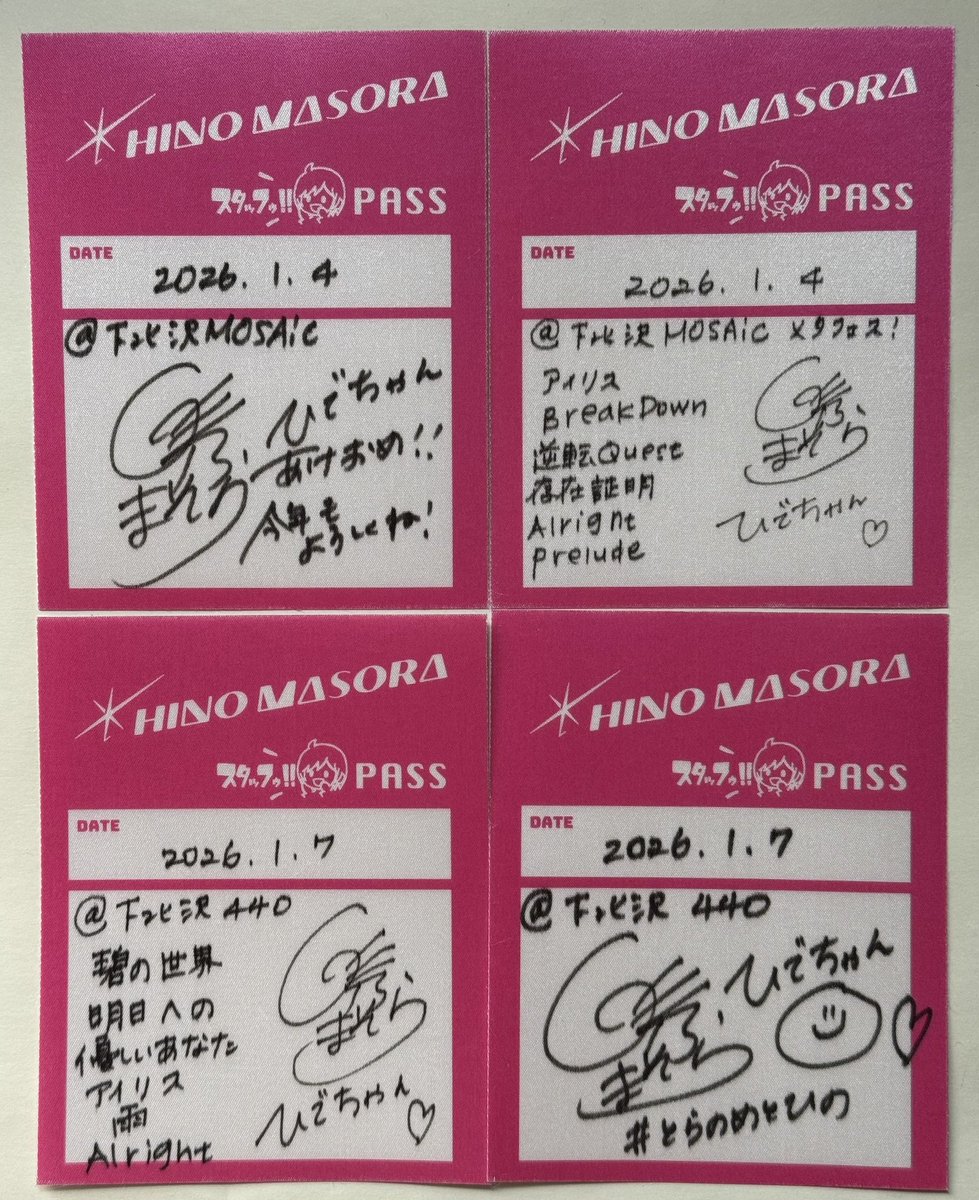 HINO MASORA
スタッフゥ!! PASS
DATE
2026.1.4
@下北沢MOSAiC
まそら
ひでちゃん
あけおめ!!
今年も
よろしくね!
HINO MASORA
スタッフゥ!! PASS
DATE
2026.1.4
@下北沢MOSAiC メタフェス!
アイリス
BreakDown
逆転Quest
存在証明
Alright
prelude
まそら
ひでちゃん♡
HINO MASORA
スタッフゥ!! PASS
DATE
2026.1.7
@下北沢 440
碧の世界
明日への
優しいあなた
アイリス
雨
Alright
まそら
ひでちゃん♡
HINO MASORA
スタッフゥ!! PASS
DATE
2026.1.7
@下北沢 440
まそら
ひでちゃん
♡
#とらのめとひの